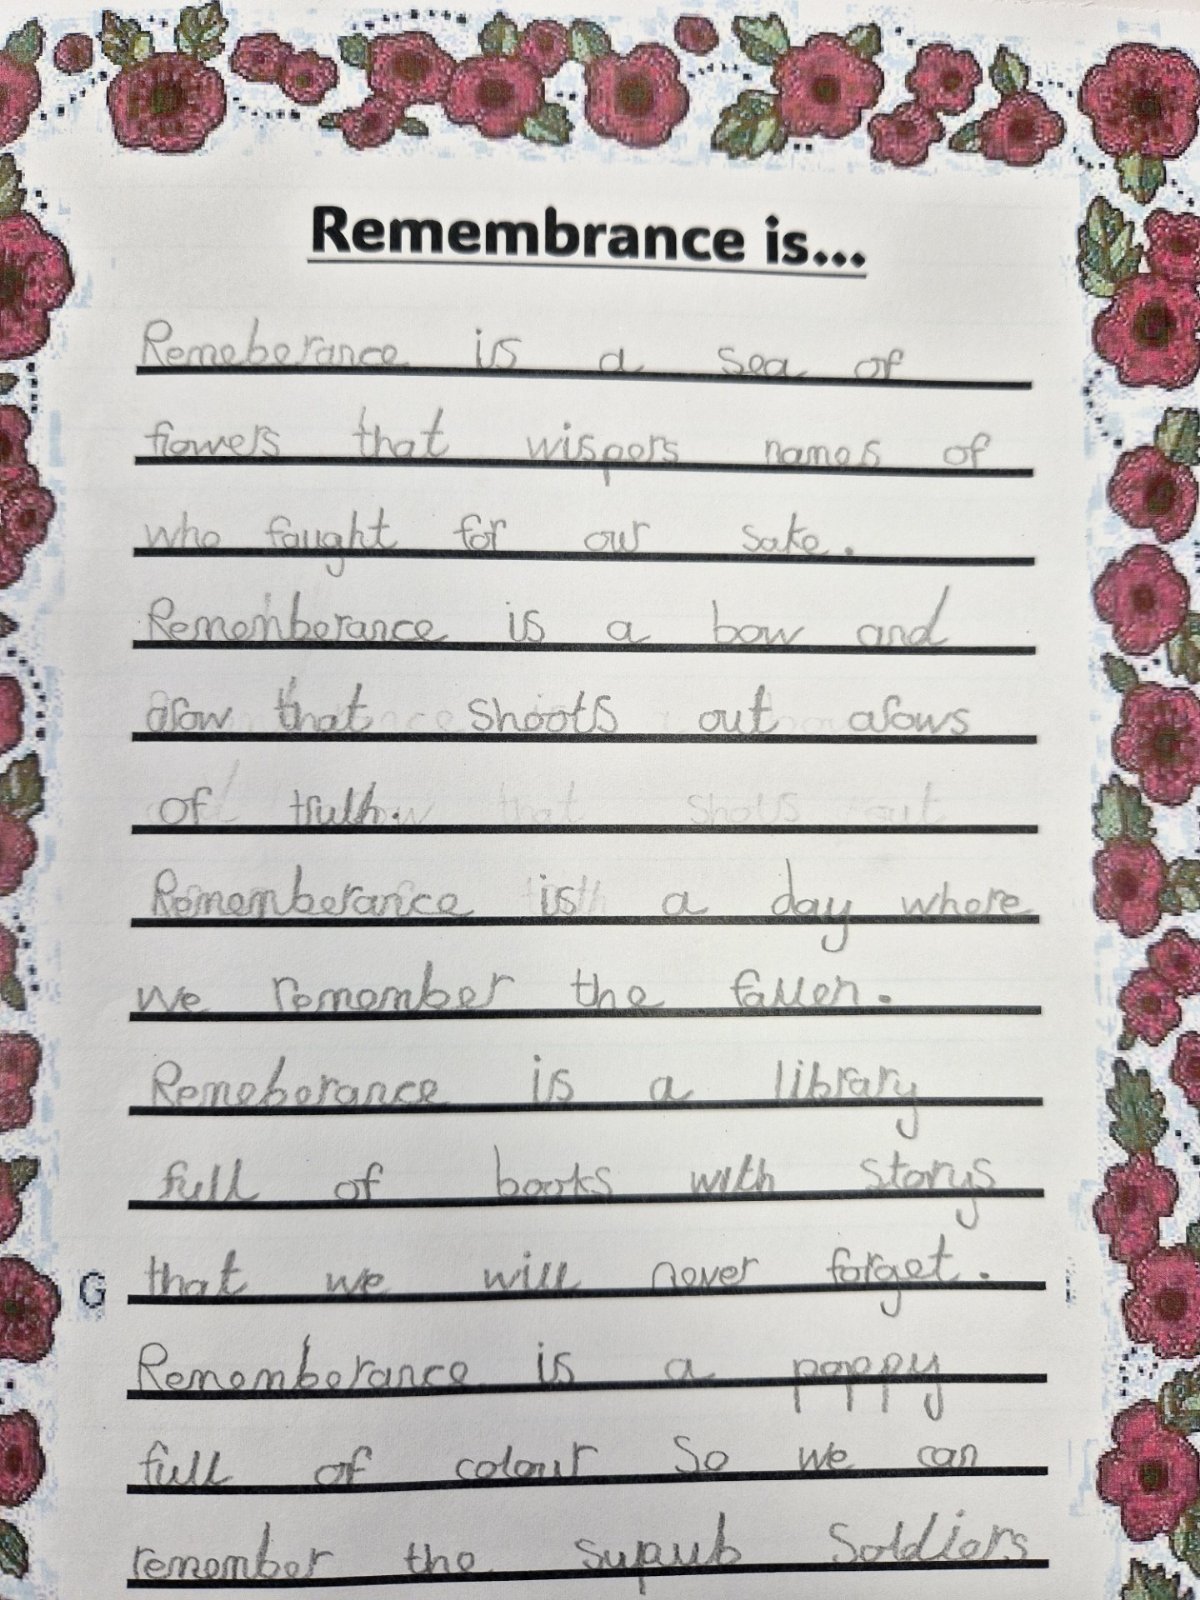 Remembrance is...
Remeberance is a sea of
flowers that wispers names of
who faught for our sake.
Rememberance is a bow and
arow that shoots out arows
of truth.
Rememberance is a day where
we remember the fallen.
Remeberance is a library
full of books with storys
that we will never forget.
Rememberance is a poppy
full of colour so we can
remember the supurb Soldiers
G